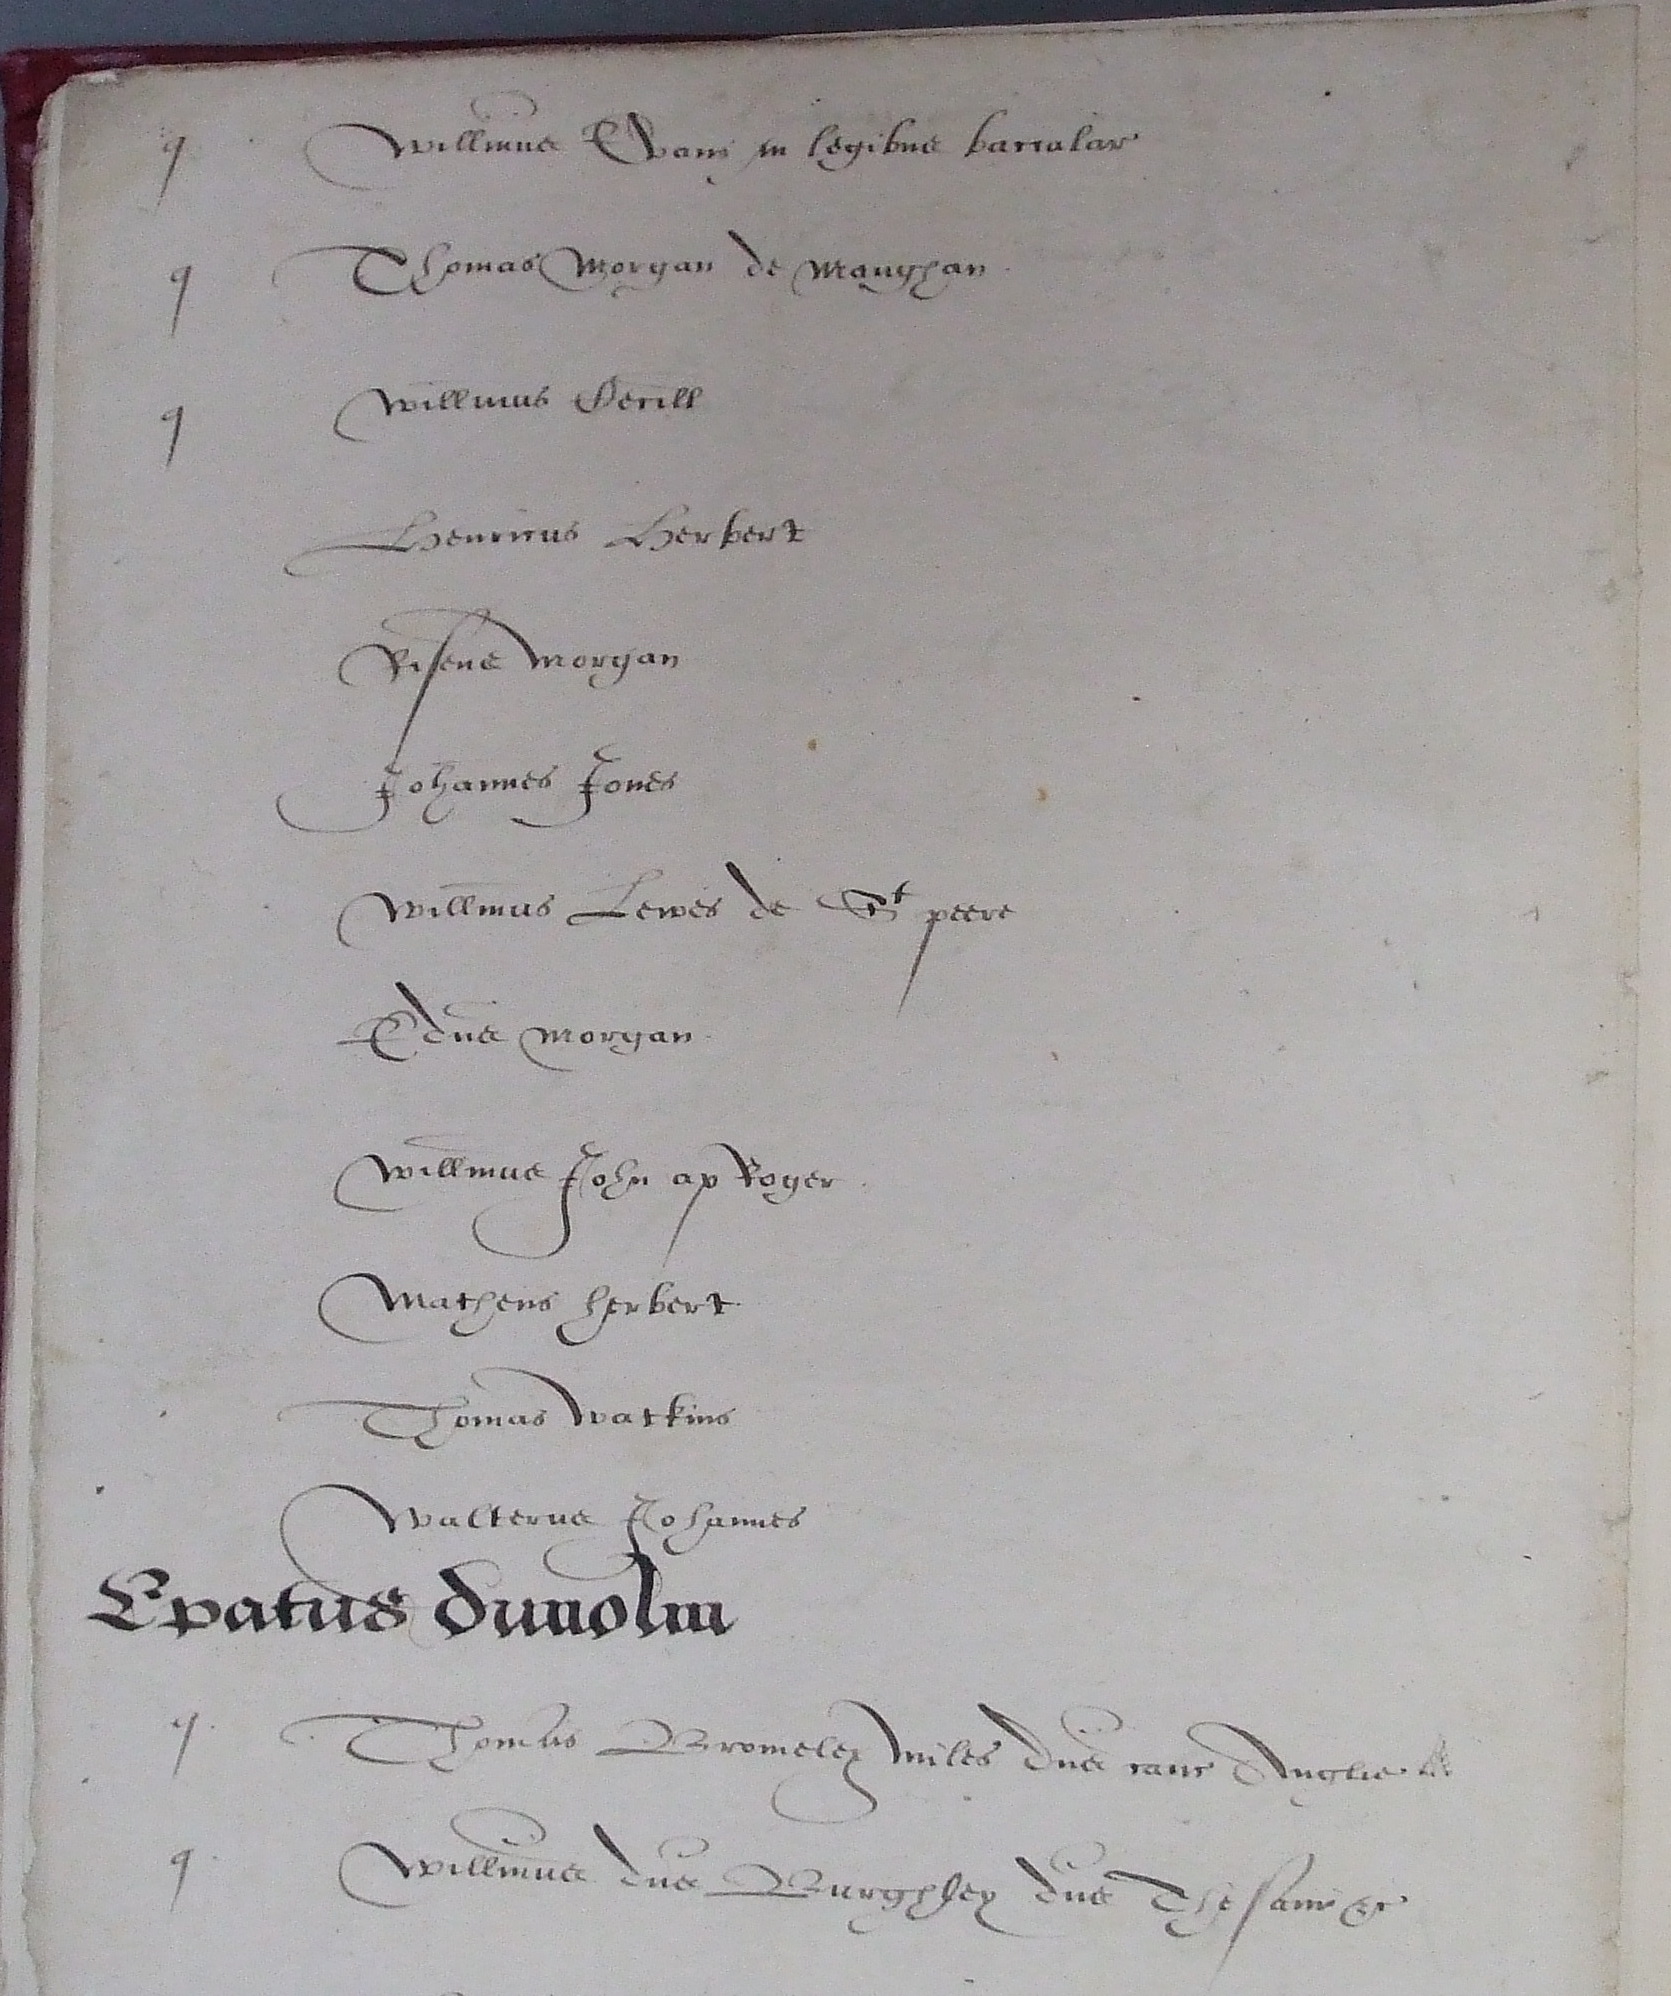 q Willmus Evans in legibus baccalar
q Thomas Morgan de Maughan
q Willmus Cecill
Henricus Herbert
Riseus Morgan
Johannes Jones
Willmus Lewes de St peere
Edus Morgan
Willmus John ap Roger
Matheus Herbert
Thomas Watkins
Walterus Johannes
Epatus Dunolm
q Thomas Bromeley miles dns canc Anglie &c
q Willmus dns Burghley dns Thesaur &c